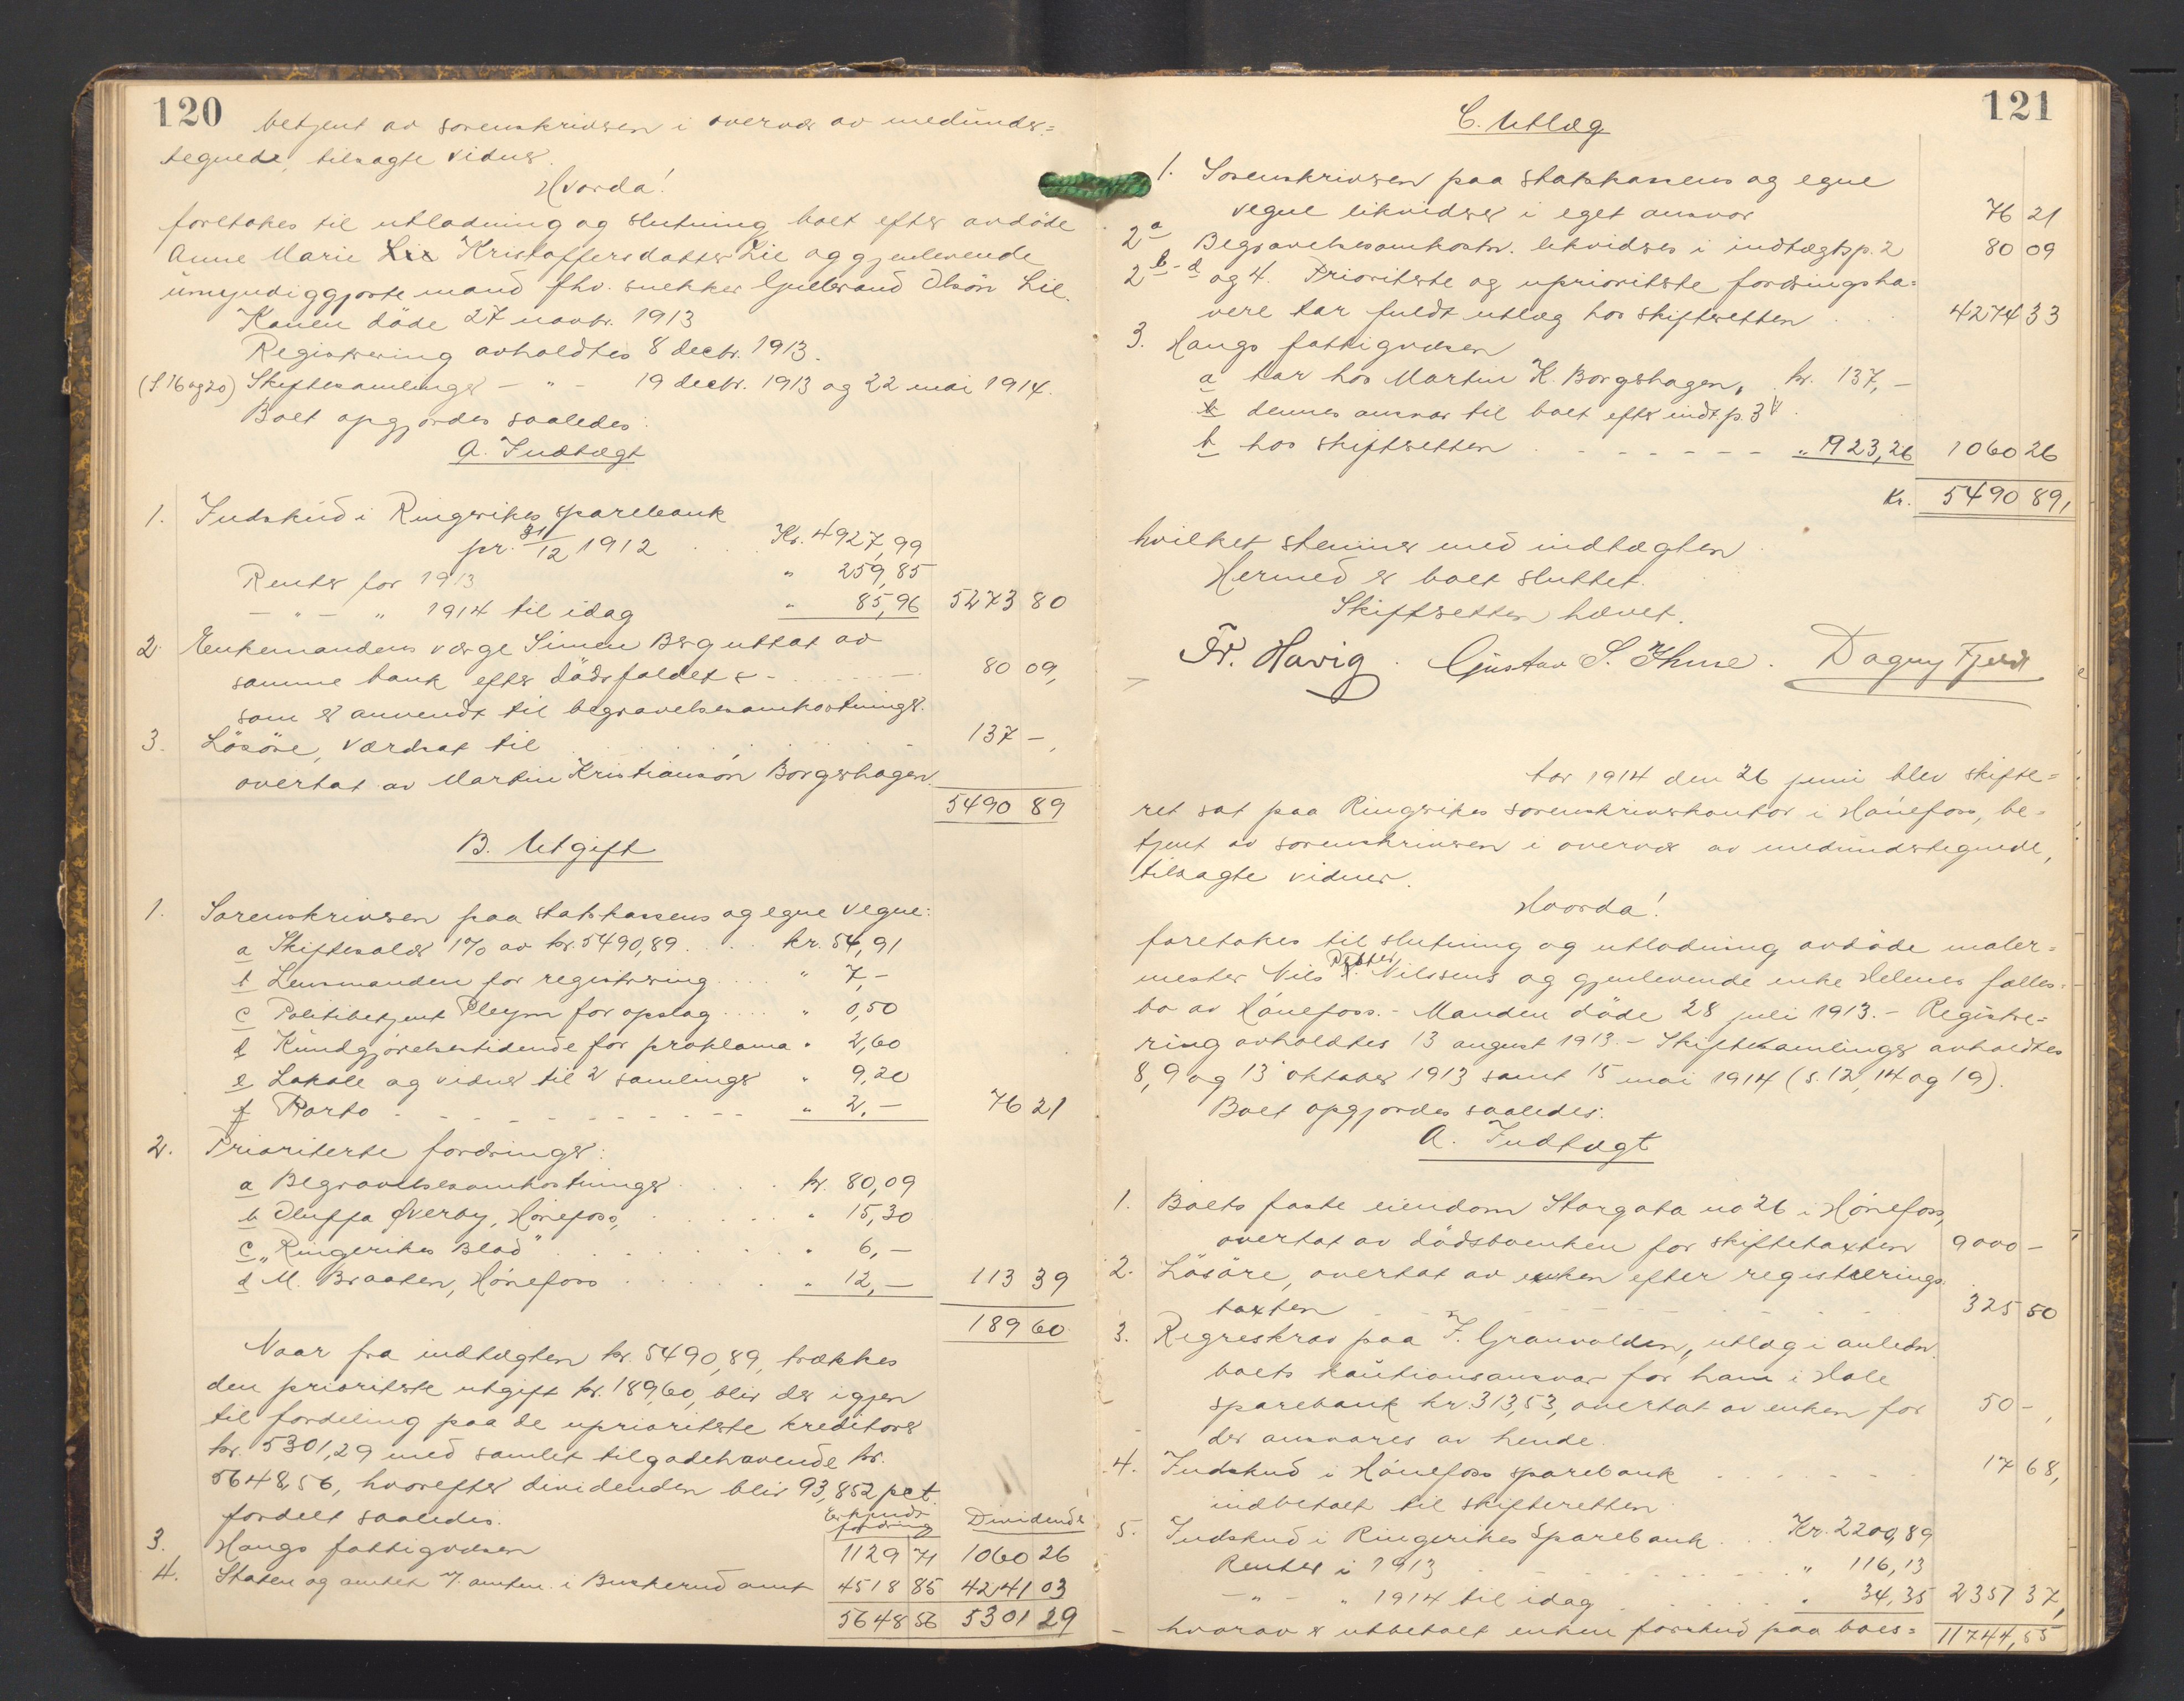 120
betjent av sorenskriveren i overvær av medunder=
tegnede, tilsagte vidner.
Hvorda!
foretokes til utlodning og slutning boet efter avdöde
Anne Marie Lie Kristoffersdatter Lie og gjenlevende
umyndiggjorte mand fhv. snekker Gulbrand Olsön Lie.
Konen döde 27 novbr. 1913
Registrering avholdtes 8 decbr. 1913.
(S. 16 og 20) Skiftesamlinger - " - 19 decbr. 1913 og 22 mai 1914.
Boet opgjordes saaledes:
A. Indtægt
1. Indskud i Ringerikes sparebank
pr. 31/12 1912 . . Kr. 4927,99
Renter for 1913 " 259,85
- " - " 1914 til idag " 85,96 5273 80
2. Enkemandens værge Simen Berg uttat av
samme bank efter dödsfaldet 80 09,
som er anvendt til begravelsesomkostninger.
3. Lösöre, værdsat til 137 -,
overtat av Martin Kristiansön Borgerhagen.
5490 89
B. Utgift
1. Sorenskriveren paa statskassens og egne vegne:
a Skiftesalær 1% av kr. 5490,89 . . . kr. 54,91
b Lensmanden for registrering . . . " 7,-
c Politibetjent Pleym for opslag . . . " 0,50
d Kundgjörelsestidende for proklama " 2,60
e Lokale og vidner til 2 samlinger " 9,20
f Porto - - - " 2,- 76 21
2. Prioriterte fordringer:
a Begravelsesomkostninger . . . kr. 80,09
b Oluffa Øverby, Hönefoss, . . . " 15,30
c "Ringerikes Blad" . . . " 6,-
d M. Braaten, Hönefoss . . . " 12,- 113 39
189 60
Naar fra indtægten kr. 5490,89, trækkes
den prioriterte utgift kr. 189,60, blir der igjen
til fordeling paa de uprioriterte kreditorer
kr. 5301,29 med samlet tilgodehavende kr.
5648,56, hvorefter dividenden blir 93,852 pct.
fordelt saaledes: Erkjendt fordring Dividende
3. Haugs fattigvæsen 1129 71 1060 26
4. Staten og amtet i Buskerud amt 4518 85 4241 03
5648 56 5301 29
121
C. Utlæg
1. Sorenskriveren paa statskassens og egne
vegne likviderer i eget ansvar 76 21
2a Begravelsesomkostn. likvideres i indtægtsp. 2 80 09
2b-d og 4. Prioriterte og uprioriterte fordringsha=
vere tar fuldt utlæg hos skifteretten . . 4274 33
3. Haugs fattigvæsen
a tar hos Martin K. Borgerhagen, kr. 137,-
b dennes ansvar til boet efter indt. p. 3
b hos skifteretten - - - " 923,26 1060 26
Kr. 5490 89,
hvilket stemmer med indtægten.
Hermed er boet sluttet.
Skifteretten hævet.
Fr. Havig. Gustav S. Ihme. Dagny Fjeld
Aar 1914 den 26 juni blev skifte=
ret sat paa Ringerikes sorenskriverkontor i Hönefoss, be=
tjent av sorenskriveren i overvær av medundertegnede,
tilsagte vidner.
Hvorda!
foretokes til slutning og utlodning avdöde maler=
mester Nils Petter Nilssens og gjenlevende enke Helenes fælles=
bo av Hönefoss. - Manden döde 28 juli 1913. - Registre=
ring avholdtes 13 august 1913. - Skiftesamlinger avholdtes
8, 9 og 13 oktober 1913 samt 15 mai 1914 (s. 12, 14 og 19).
Boet opgjordes saaledes:
A. Indtægt
1. Boets faste eiendom Storgata no 26 i Hönefoss,
overtat av dödsboenken for skiftetaxten 9000 -
2. Lösöre, overtat av enken efter registrerings=
taxten - - - 325 50
3. Regreskrav paa F. Granvolden, utlæg i anledn.
boets kautionsansvar for ham i Hole
sparebank kr. 313,53, overtat av enken for 50 -,
der ansvares av hende.
4. Indskud i Hönefoss sparebank . . . 17 68,
indbetalt til skifteretten
5. Indskud i Ringerikes Sparebank . . Kr. 2200,89
Renter i 1913 . . . " 116,13
- " - " 1914 til idag . . . " 34,35 2351 37,
hvorav er utbetalt enken forskud paa boes= 11744,55